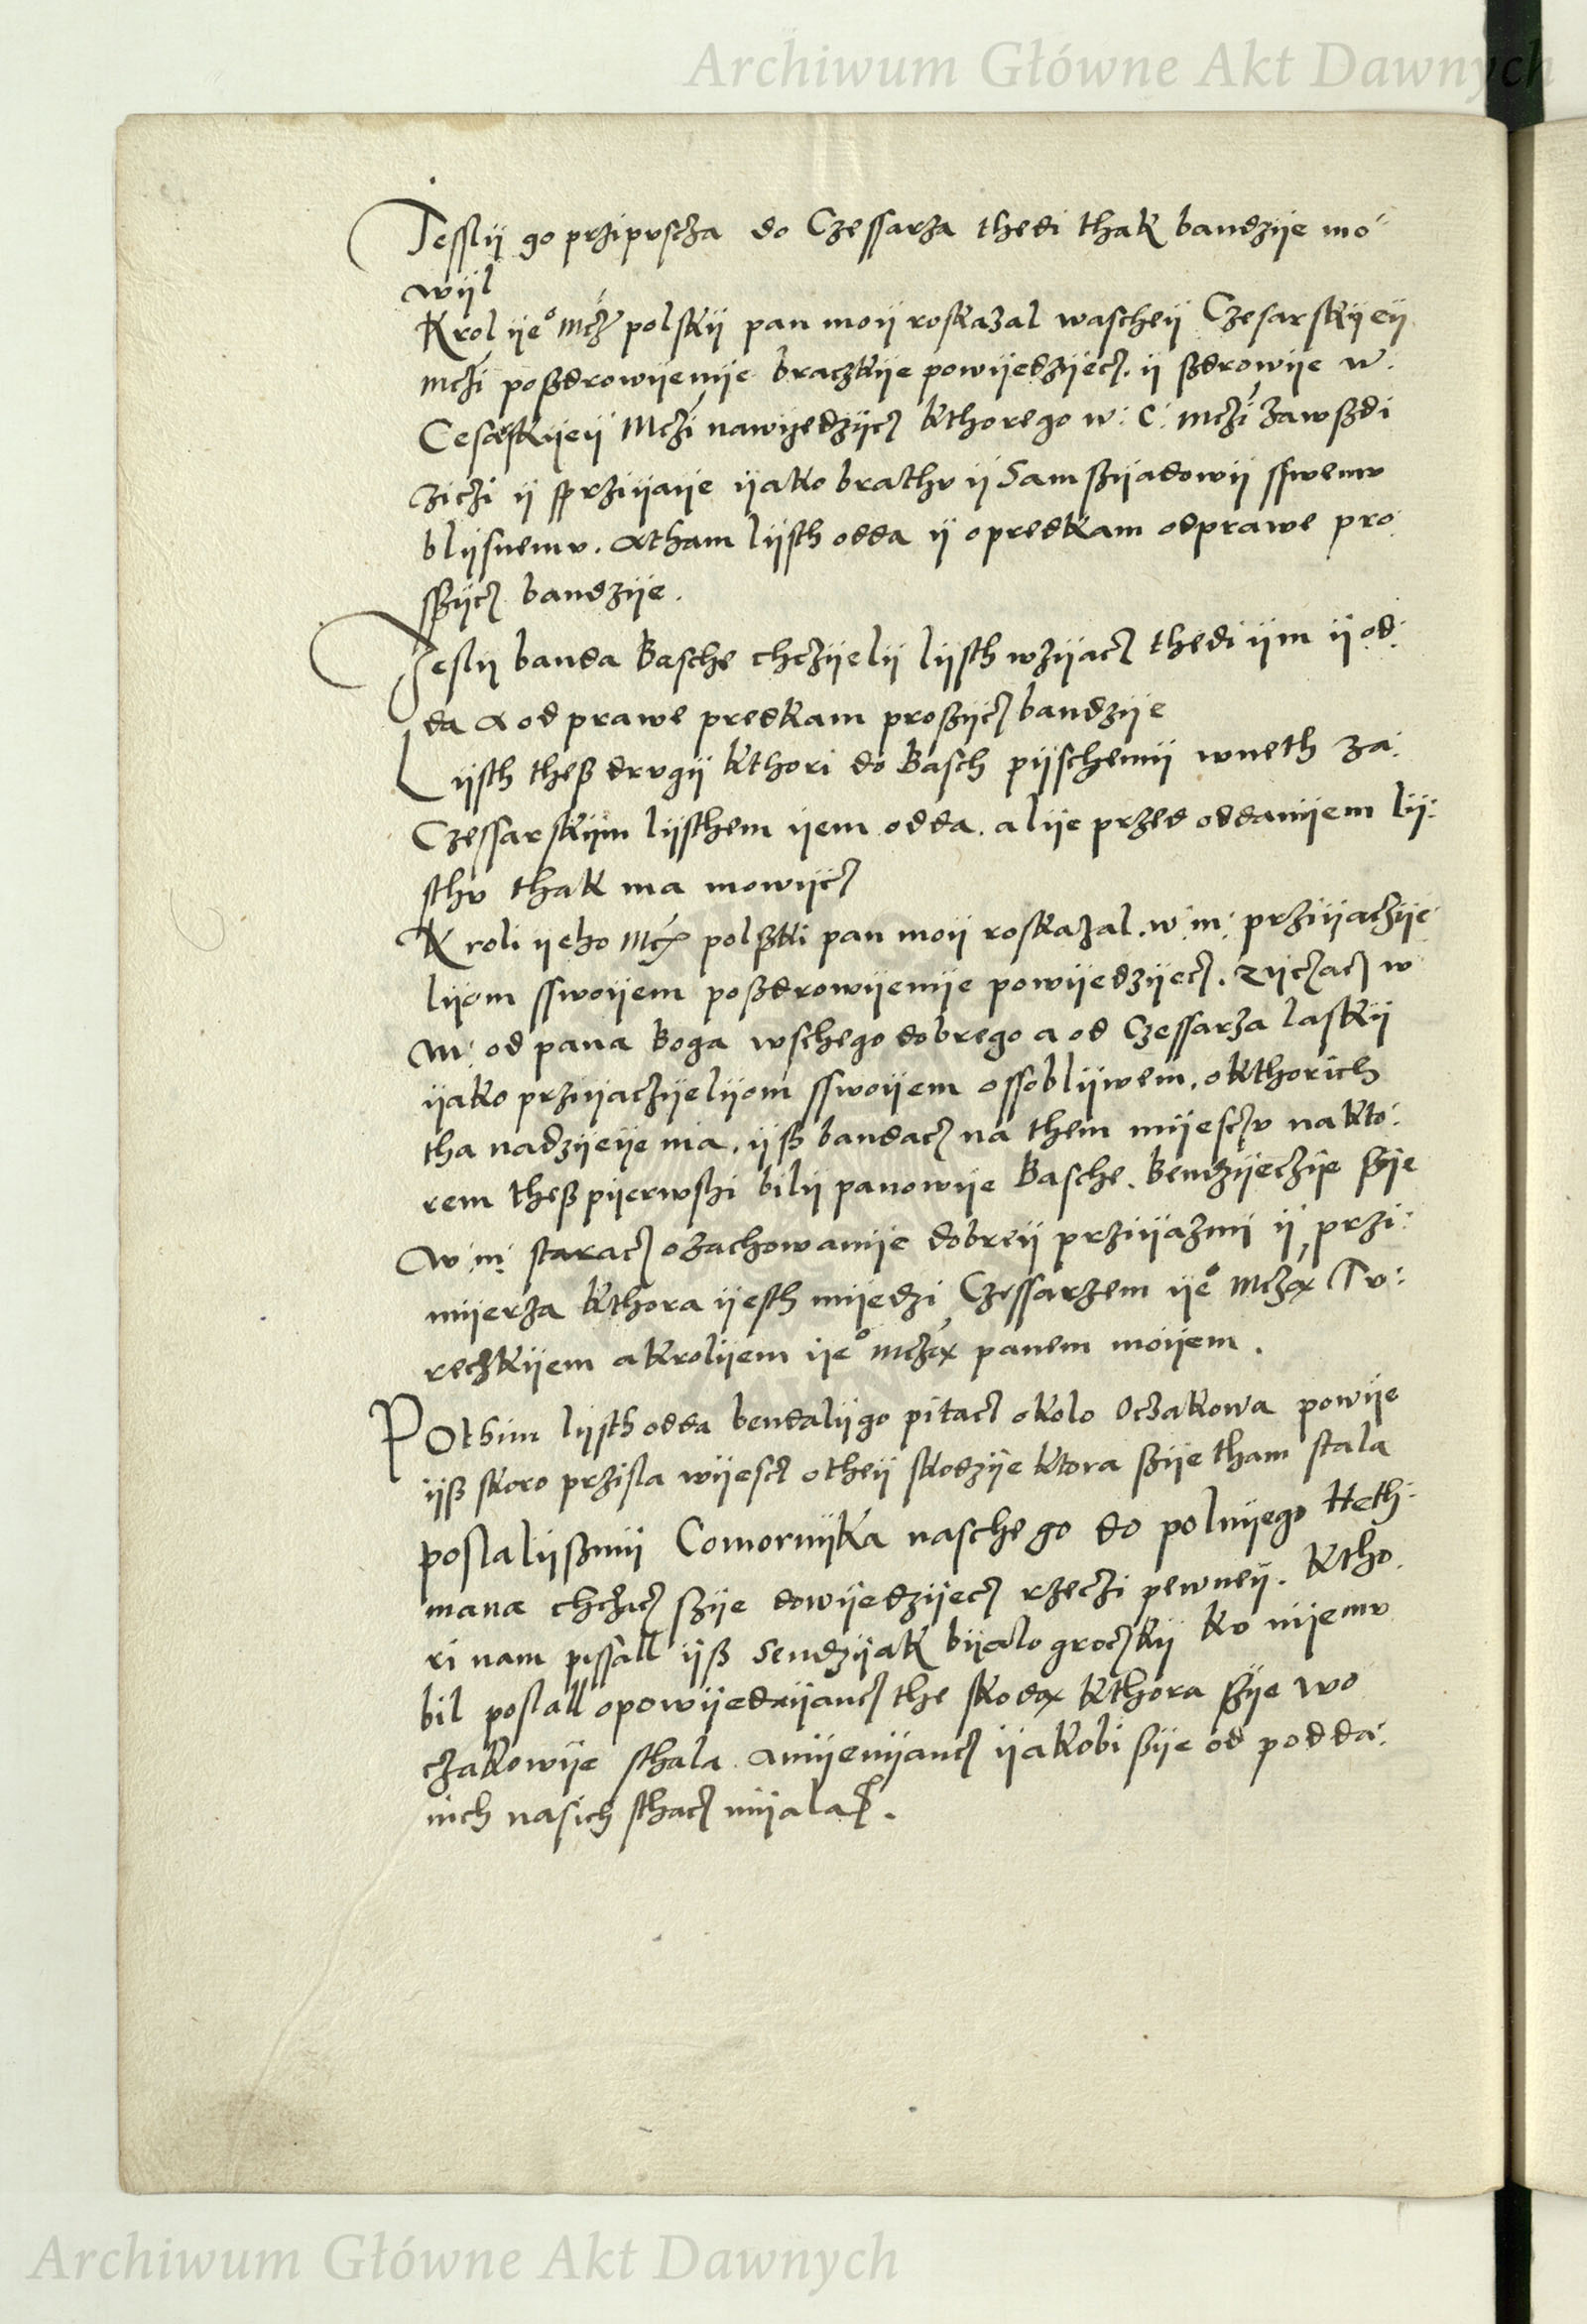 Archiwum Główne Akt Dawnych
Jesslij go przipuscza do Czessarza thedi thak bandzije mo
wijl
Krol ije° Mcz polskij pan moij roskazal wascheij Czesarskijeij
Mczi poßdrowijenije braczkije powijedzijecz. ij ßdrowije w:
Cesarskijeij Mczi nawijedzijcz kthorego w: C: Mczi zawßdi
ziczi ij sprzijaije ijako brathu ij Samßijadowij sswemu
blijsnemu. Atham lijsth odda ij o predkam odprawe pro
sßijcz bandzije.
Jeslij banda Basche chczijelij lijsth wzijacz thedi ijm ij od:
da A od prawe predkam proßijcz bandzije
Lijsth theß drugij kthori do Basch pijschemij wneth za:
Czessarskijm lijsthem ijem odda. alije przed oddanijem lij:
sthu thak ma mowijcz
Kroli ijeho Mcz polßki pan moij roskazal. w: m: przijaczije
lijom sswoijem poßdrowijenije powijedzijecz. Zijczacz w
m: od pana Boga wschego dobrego a od Czessarza laskij
ijako przijaczijelijom sswoijem ossoblijwem. o kthorich
tha nadzijeije ma. ijß bandacz na them mijesczu na kto:
rem theß pijerwßi bilij panowije Basche. Bendzijeczije ßije
w: m: staracz o zachowanije dobreij przijazni ij przi:
mijerza kthora ijesth mijedzi Czessarzem ije° Mcza Tu:
reczkijem a krolijem ije° Mcza panem moijem.
Pothim lijsth odda bendalijgo pitacz okolo Oczakowa powije
ijß skoro przisla wijescz o theij skodzije ktora ßije tham stala
poslalijßmij Comornijka naschego do polnijego Heth:
mana chcącz ßije dowijedzijecz rzeczi pewneij. ktho
ri nam pissall ijß Sendzijak bijalogroczkij ku nijemu
bil poslall opowijedaijancz the skoda kthora ßije w o
czakowije sthala. A mijenijancz ijakobi ßije od podda:
nich nasich sthacz mijala.
Archiwum Główne Akt Dawnych